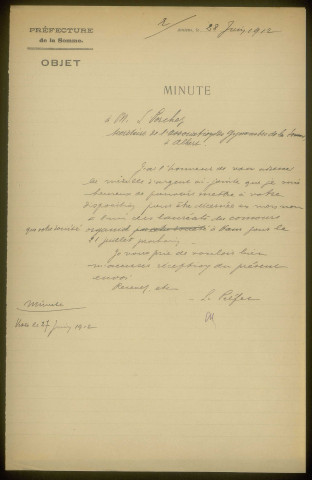 PRÉFECTURE
de la Somme.
OBJET
2/ Amiens, le 28 Juin 1912
MINUTE
à M. L. 
Secrétaire de l'Association des Gymnastes de la Somme
à Albert
J'ai l'honneur de vous adresser
la médaille d'argent ci-jointe que je suis
heureux de pouvoir mettre à votre
disposition pour être décernée en mon nom
à l'un des lauréats du concours
que cela 
à Ham pour le
juillet prochain.
Je vous prie de vouloir bien
m'accuser réception du présent
envoi.
Recevez, etc.
L. Préfet
Minute
Visa le 27 Juin 1912